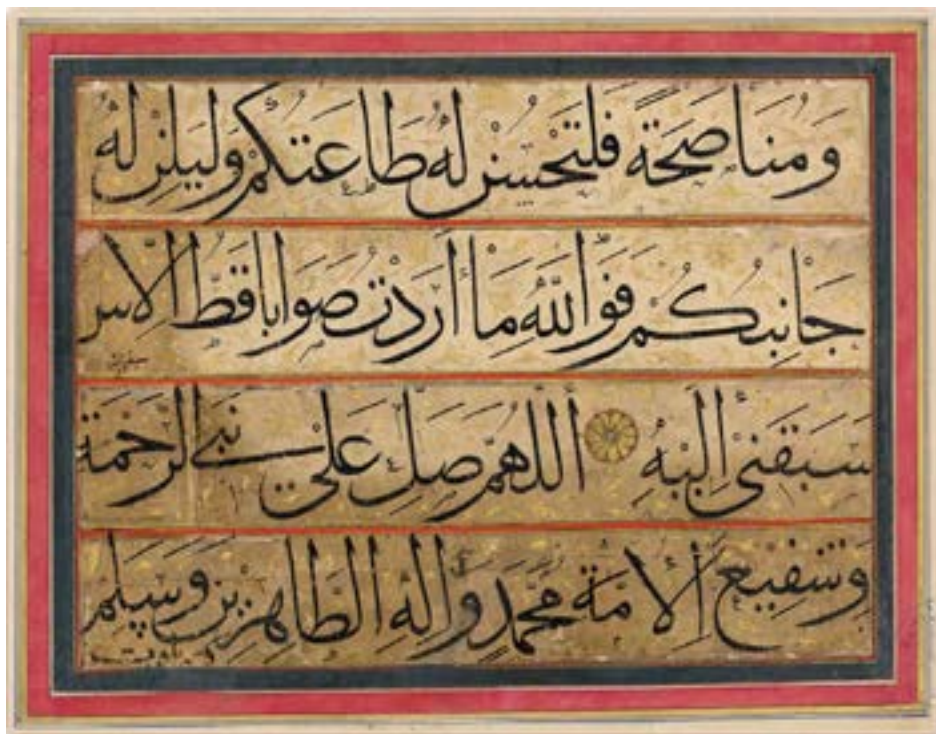 وَمُنَاصَحَةً فَلْتَحْسُنْ لَهُ طَاعَتُكُمْ وَلْيَلِنْ لَهُ
جَانِبُكُمْ فَوَاللّٰهِ مَا أَرَدْتُ صَوَابًا قَطُّ إِلَّا
سَبَقَنِي إِلَيْهِ اَللّٰهُمَّ صَلِّ عَلٰى نَبِيِّ الرَّحْمَةِ
وَشَفِيعِ الْأُمَّةِ مُحَمَّدٍ وَآلِهِ الطَّاهِرِينَ وَسَلِّمْ